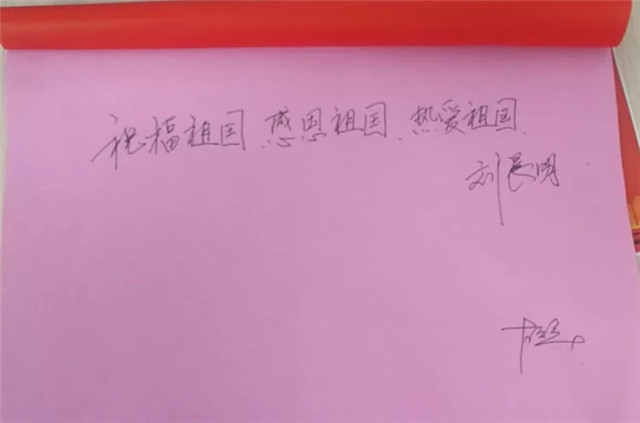 祝福祖国 感恩祖国、热爱祖国
刘晨明